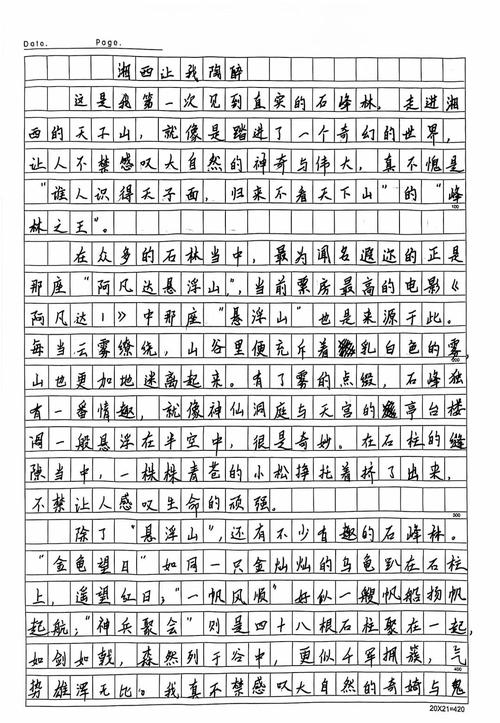 Date. Page.
湘西让我陶醉
这是我第一次见到真实的石峰林。走进湘
西的天子山，就像是踏进了一个奇幻的世界，
让人不禁感叹大自然的神奇与伟大，真不愧是
“谁人识得天子面，归来不看天下山”的“峰
林之王”。
100
在众多的石林当中，最为闻名遐迩的正是
那座“阿凡达悬浮山”，当前票房最高的电影《
阿凡达1》中那座“悬浮山”也是来源于此。
每当云雾缭绕，山谷里便充斥着乳白色的雾，
200
山也更加地迷离起来。有了雾的点缀，石峰独
有一番情趣，就像神仙洞庭与天宫的亭台楼
阁一般悬浮在半空中，很是奇妙。在石柱的缝
隙当中，一株株青苍的小松挣托着挤了出来，
不禁让人感叹生命的顽强。
300
除了“悬浮山”，还有不少有趣的石峰林。
“金龟望日”如同一只金灿灿的乌龟趴在石柱
上，遥望红日；“一帆风顺”好似一艘帆船扬帆
起航；“神兵聚会”则是四十八根石柱聚在一起，
如剑如戟，森然列于谷中，更似千军拥簇，气
400
势雄浑无比。我真不禁感叹大自然的奇崎与鬼
20X21=420